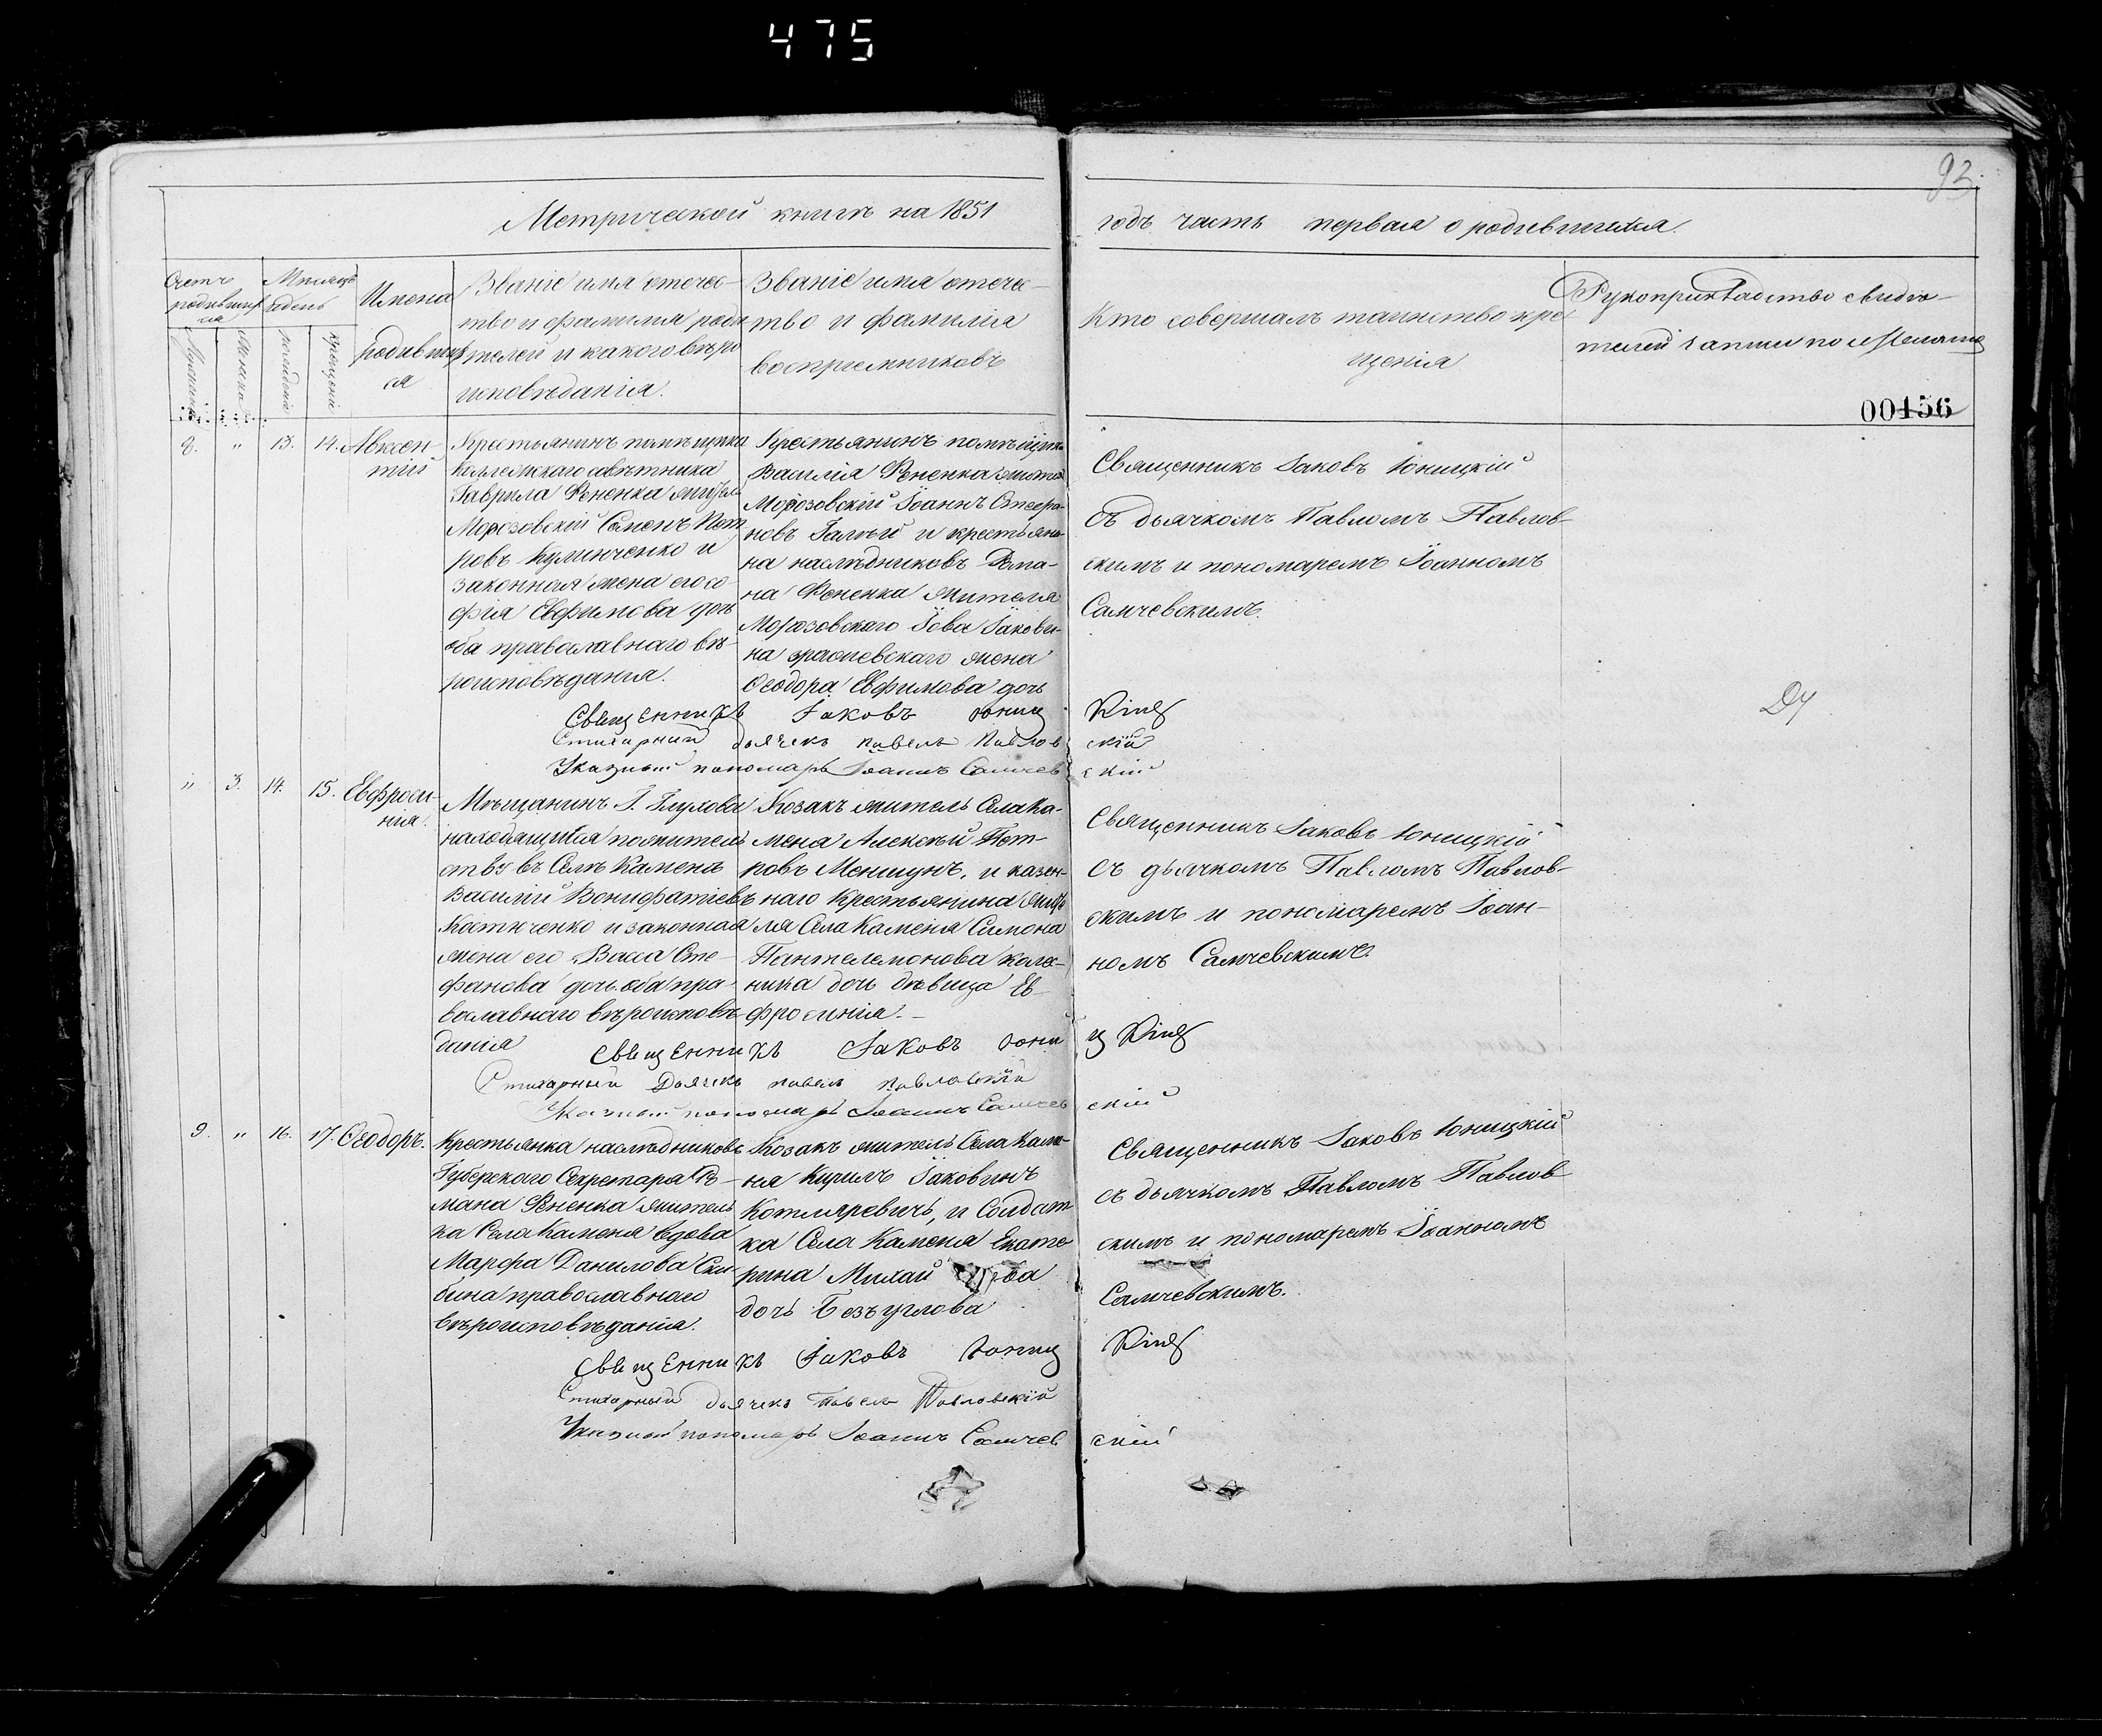 475
92
Метрической книги на 1851
годъ часть первая о родившихся.
Счетъ
родивших
ся
Мужеска
Женска
Мѣсяцъ
и день
рожденія
крещенія
Имена
родивших
ся
Званіе имя отечес-
тво и фамилія роди
телей и какого вѣро
исповѣданія.
Званіе имя отечес-
тво и фамилія
воспріемниковъ
Кто совершалъ таинство кре
щенія
Рукоприкладство свидѣ-
телей записи по желанію
00156
8. " 13. 14. Авксен-
тій
Крестьянинъ помѣщика
Коллежскаго совѣтника
Гаврила Фененка житель
Морозовскій Семенъ Пет
ровъ Кулинченко и
законная жена его Со-
фія Евфимова дочь
оба православнаго вѣ-
роисповѣданія.
Крестьянинъ помѣщика
Василія Фененка житель
Морозовскій Іоаннъ Стефа-
новъ Галый и крестьяни-
на наслѣдниковъ Рома-
на Фененка жителя
Морозовского Іова Іакови-
на жена
Ѳеодора Евфимова дочь
Священникъ Іаковъ Юницкій
съ дьячкомъ Павломъ Павлов-
скимъ и пономаремъ Іоанномъ
Самчевскимъ.
Священникъ Іаковъ Юницкій
Стихарный дьячекъ Павелъ Павловскій
Указный пономарь Іоаннъ Самчевскій
" 3. 14. 15. Евфроси-
нія.
Мѣщанинъ Г. Глухова
находящійся по житель
ству въ Селѣ Каменѣ
Василій Вонифатіевъ
Костюченко и законная
жена его Васса Сте-
фанова дочь оба пра-
вославнаго вѣроисповѣ-
данія
Козакъ житель Села Ка-
меня Алексѣй Пет-
ровъ Меншунъ, и казен-
наго Крестьянина жите
ля Села Каменя Симона
Пантелемонова Калаш-
ника дочь дѣвица Ев-
фросинія.-
Священникъ Іаковъ Юницкій
съ дьячкомъ Павломъ Павлов-
скимъ и пономаремъ Іоан-
номъ Самчевскимъ.
Священникъ Іаковъ Юницкій
Стихарный Дьячекъ Павелъ Павловскій
Указный пономарь Іоаннъ Самчевскій
9. " 16. 17. Ѳеодоръ.
Крестьянка наслѣдниковъ
Губерского Секретаря Ро-
мана Фененка житель
ка Села Каменя вдова
Марфа Данилова Ски-
бина православнаго
вѣроисповѣданія.
Козакъ житель Села Каме-
ня Кирилъ Іаковинъ
Котляревичъ, и Солдат
ка Села Каменя Екате
рина Михай ова
дочь Безъуглова
Священникъ Іаковъ Юницкій
съ дьячкомъ Павломъ Павлов
скимъ и пономаремъ Іоанномъ
Самчевскимъ.
Священникъ Іаковъ Юницкій
Стихарный дьячекъ Павелъ Павловскій
Указный пономарь Іоаннъ Самчевскій